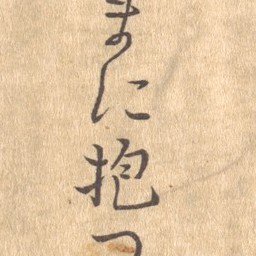 まに抱つ